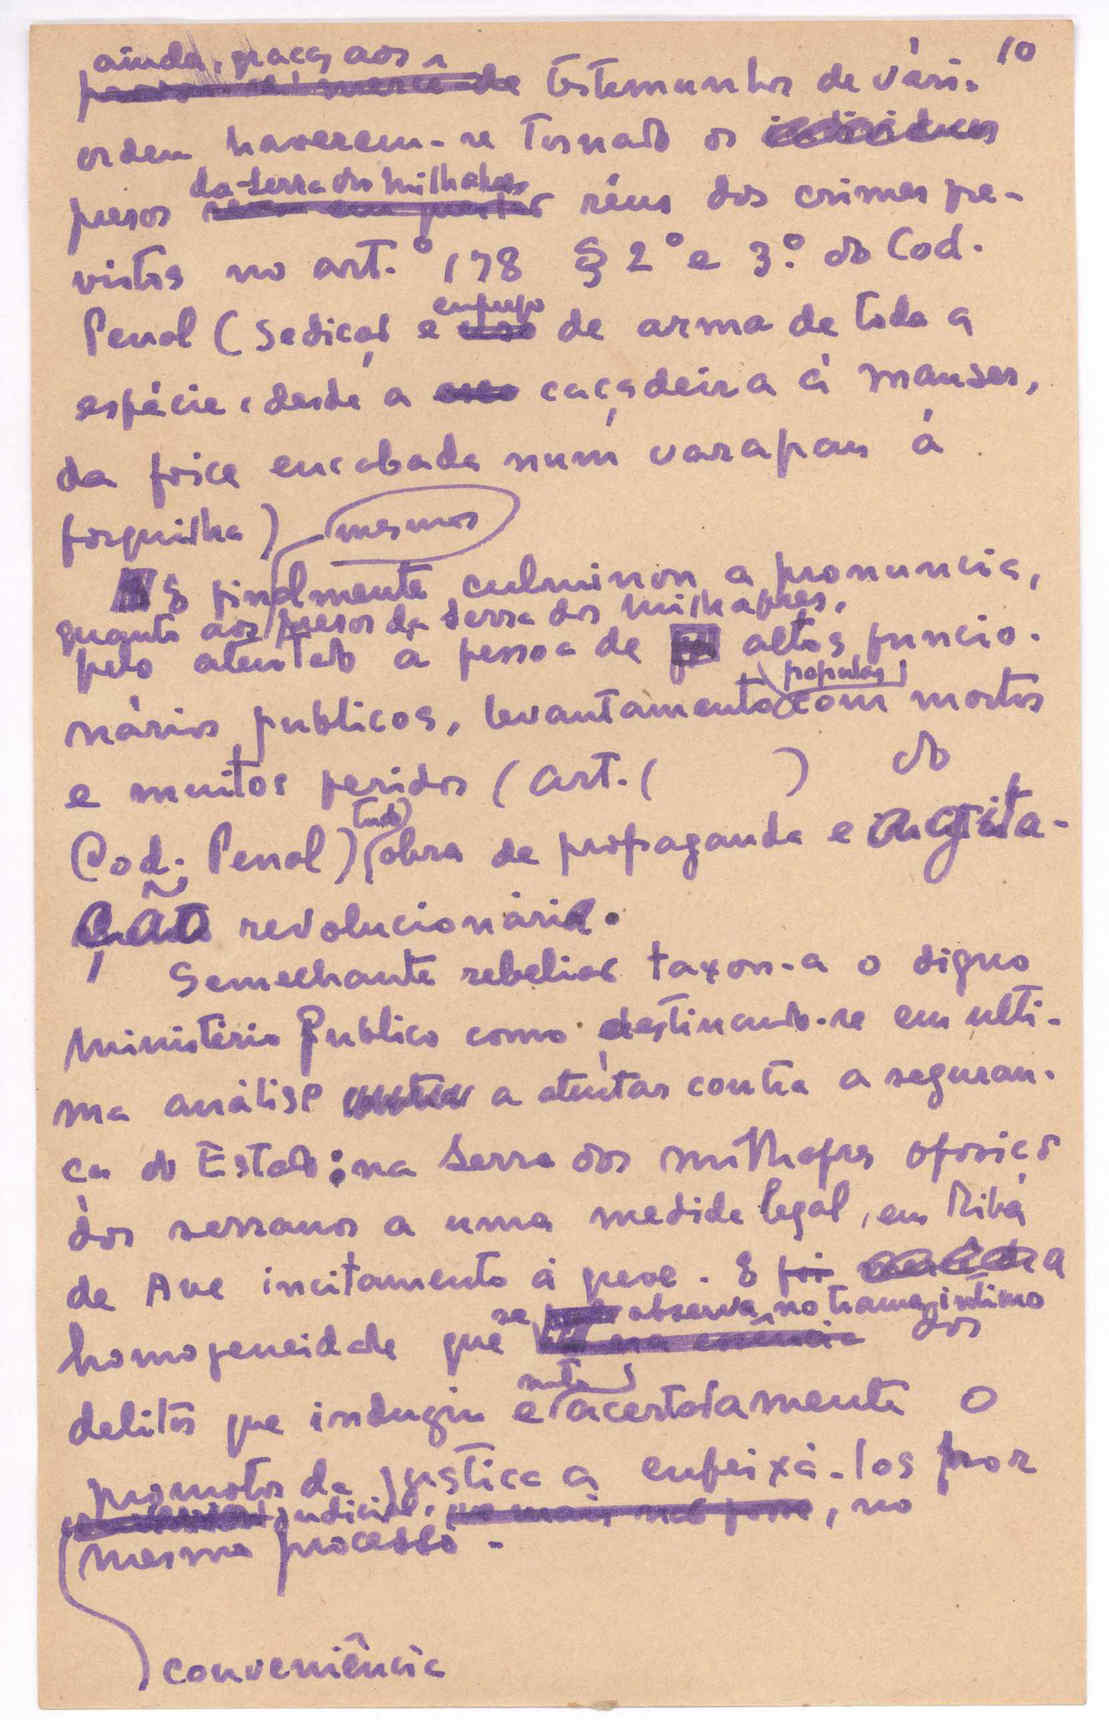 10
ainda, graças aos
testemunhos de vári.
ordem haverem-se tornado os
presos da serra dos Milhafres réus dos crimes pre-
vistos no art.º 178 § 2º e 3.º do Cod.
Penal (Sedição e emprego de arma de toda a
espécie, desde a caçadeira á mauser,
da foice encabada num varapau á
forquilha)
mesmos
E finalmente culminou a pronuncia,
quanto aos presos da Serra dos Milhafres,
pelo atentado á pessoa de altos funcio-
nários publicos, levantamento popular com mortos
e muitos feridos (art. ( ) do
Cod. Penal) tudo obra de propaganda e agita-
ção revolucionária.
Semelhante rebelião taxou-a o digno
Ministério Publico como destinando-se em ulti-
ma análise a atentar contra a seguran-
ça do Estado: na Serra dos Milhafres oposição
dos serranos a uma medida legal, em Riba
de Ave incitamento á greve. E foi a
homogeneidade que se observa no trama intimo dos
delitos que induziu muito acertadamente o
promotor da justiça a enfeixá-los por
judicial, no
mesmo processo.
conveniência